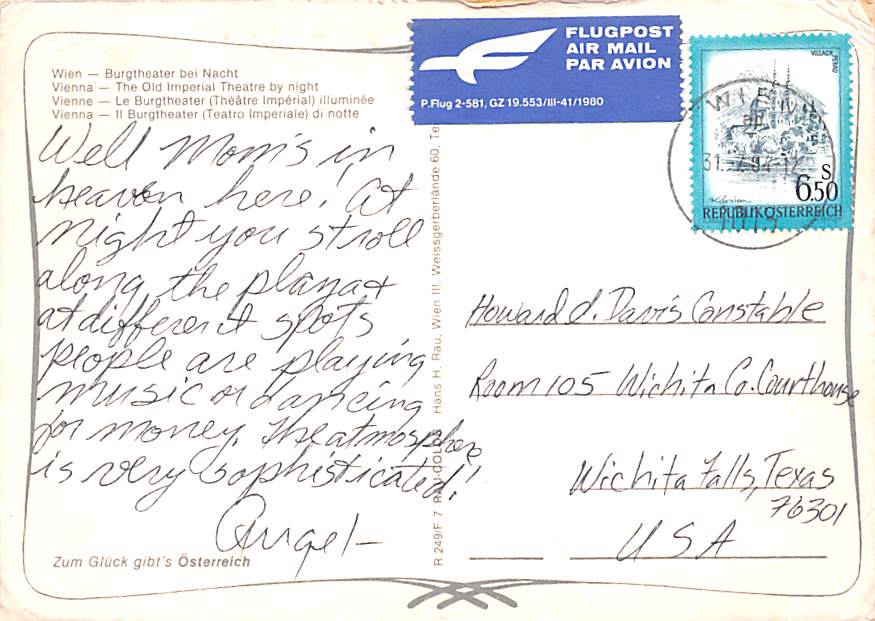 Wien — Burgtheater bei Nacht
Vienna — The Old Imperial Theatre by night
Vienne — Le Burgtheater (Théâtre Impérial) illuminée
Vienna — Il Burgtheater (Teatro Imperiale) di notte
Well Mom's in
heaven here! At
night you stroll
along the playa &
at different spots
people are playing
music or dancing
for money. The atmosphere
is very sophisticated!
Angel-
Zum Glück gibt's Österreich
R 249/F 7 Hans H. Rau, Wien III, Weissgerberlände 60, Te
FLUGPOST
AIR MAIL
PAR AVION
P.Flug 2-581, GZ 19.553/III-41/1980
VILLACH
PERAU
S
6.50
REPUBLIK ÖSTERREICH
WIEN
1115
Howard d. Davis Constable
Room 105 Wichita Co. Courthouse
Wichita Falls, Texas
76301
USA